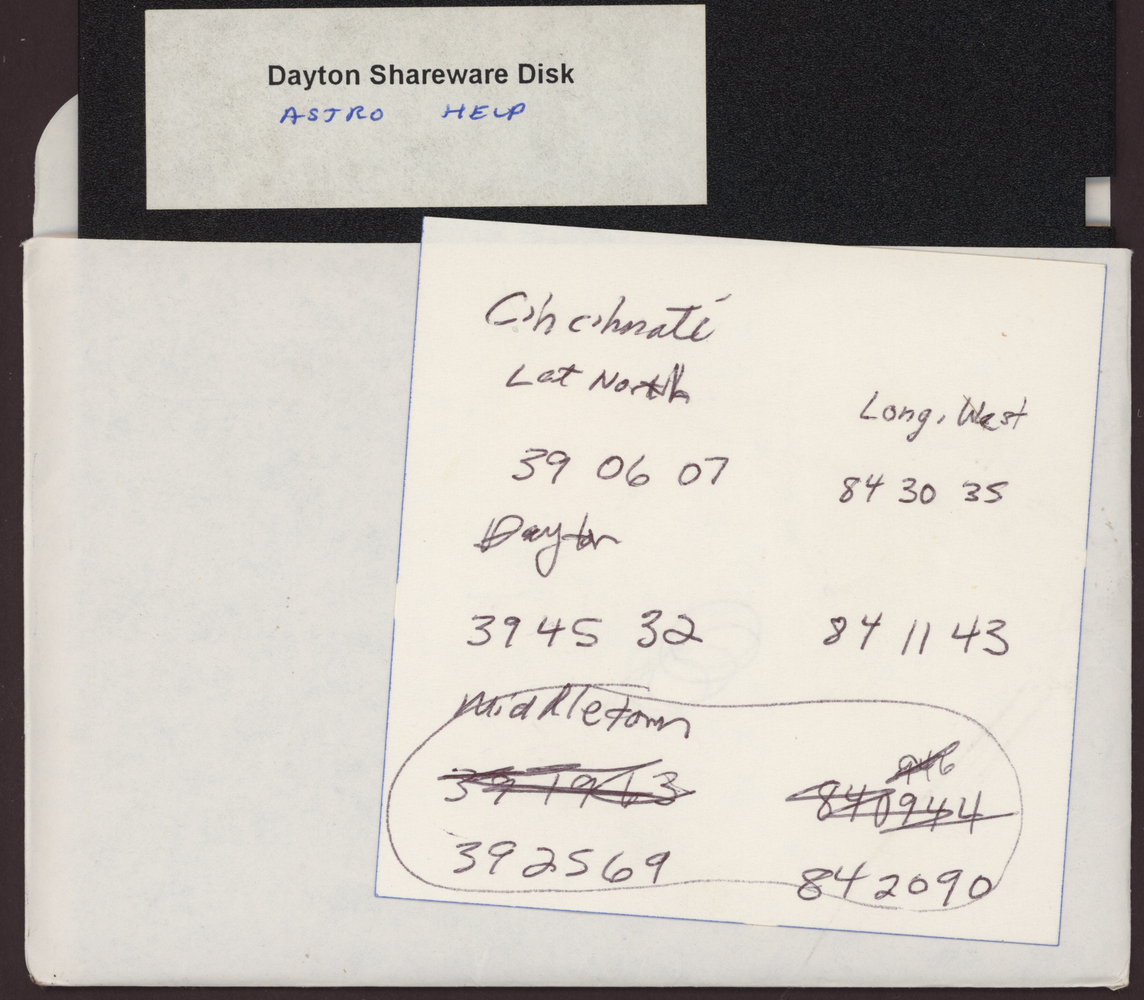 Dayton Shareware Disk
ASTRO HELP
Cincinnati
Lat North Long. West
39 06 07 84 30 35
Dayton
39 45 32 84 11 43
Middletown
946
39 19 63 840944
392569 842090